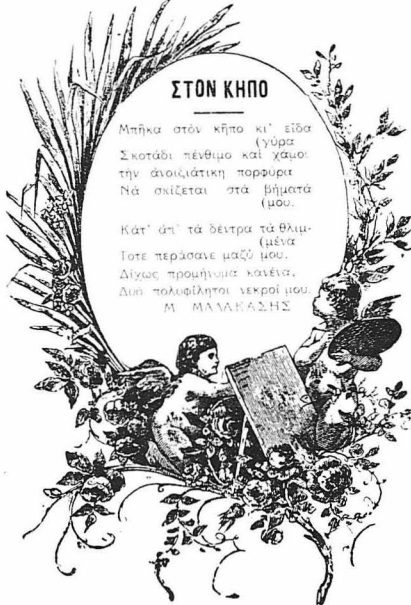 ΣΤΟΝ ΚΗΠΟ
Μπῆκα στόν κῆπο κι' εἶδα
(γύρα
Σκοτάδι πένθιμο καί χάμοι
τήν ἀνοιξιάτικη πορφύρα
Νά σκίζεται στά βήματά
(μου.
Κάτ' ἀπ' τά δέντρα τά θλιμ-
(μένα
Τοτε περάσανε μαζύ μου,
Δίχως προμήνυμα κανένα,
Δυό πολυφίλητοι νεκροί μου.
Μ ΜΑΛΑΚΑΣΗΣ